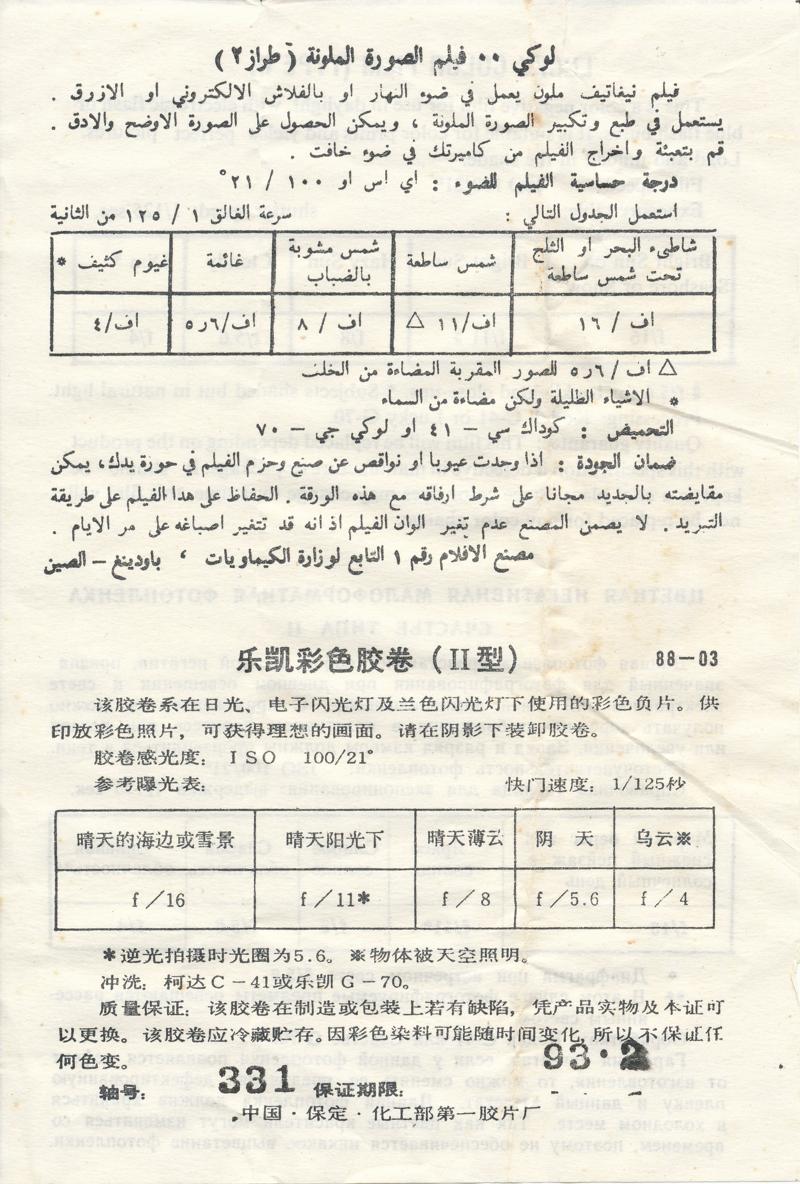 لوكي ٠٠ فيلم الصورة الملونة ( طراز ٢ )
فيلم نيغاتيف ملون يعمل في ضوء النهار او بالفلاش الالكتروني او الازرق .
يستعمل في طبع وتكبير الصورة الملونة ، ويمكن الحصول على الصورة الاوضح والادق .
قم بتعبئة واخراج الفيلم من كاميرتك في ضوء خافت .
درجة حساسية الفيلم للضوء : اي اس او ١٠٠ / ٢١°
استعمل الجدول التالي : سرعة الغالق ١ / ١٢٥ من الثانية
شاطىء البحر او الثلج تحت شمس ساطعة
شمس ساطعة
شمس مشوبة بالضباب
غائمة
غيوم كثيف *
اف / ١٦
اف/ ١١ △
اف / ٨
اف/ ٦ر٥
اف/ ٤
△ اف / ٦ر٥ للصور المقربة المضاءة من الخلف
* الاشياء الظليلة ولكن مضاءة من السماء
التحميض : كوداك سي – ٤١ او لوكي جي – ٧٠
ضمان الجودة : اذا وجدت عيوبا او نواقص عن صنع وحزم الفيلم في حورة يدك، يمكن
مقايضته بالجديد مجانا على شرط ارفاقه مع هذه الورقة . الحفاظ على هدا الفيلم على طريقة
التبريد . لا يضمن المصنع عدم تغير الوان الفيلم اذ انه قد تتغير اصباغه على مر الايام .
مصنع الافلام رقم ١ التابع لوزارة الكيماويات ، باودينغ – الصين
乐凯彩色胶卷（II型） 88—03
该胶卷系在日光、电子闪光灯及兰色闪光灯下使用的彩色负片。供
印放彩色照片，可获得理想的画面。请在阴影下装卸胶卷。
胶卷感光度：ISO 100/21°
参考曝光表： 快门速度：1/125秒
晴天的海边或雪景 晴天阳光下 晴天薄云 阴 天 乌云※
f／16 f／11* f／8 f／5.6 f／4
*逆光拍摄时光圈为5.6。※物体被天空照明。
冲洗：柯达C－41或乐凯G－70。
质量保证：该胶卷在制造或包装上若有缺陷，凭产品实物及本证可
以更换。该胶卷应冷藏贮存。因彩色染料可能随时间变化，所以不保证任
何色变。
轴号：331 保证期限：93·2
中国·保定·化工部第一胶片厂